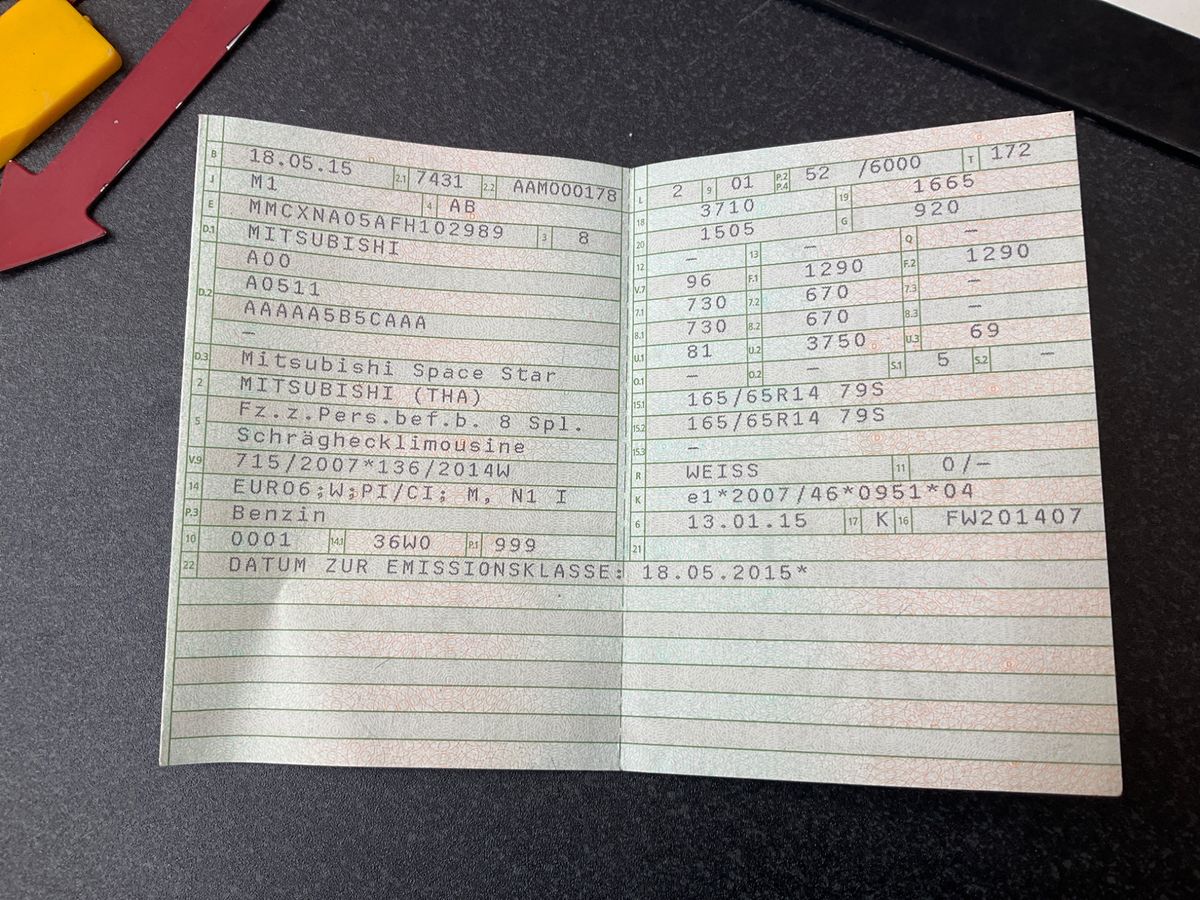 B 18.05.15 2.1 7431 2.2 AAM000178
J M1 4 AB
E MMCXNA05AFH102989 3 8
D.1 MITSUBISHI
A00
D.2 A0511
AAAAA5B5CAAA
–
D.3 Mitsubishi Space Star
2 MITSUBISHI (THA)
5 Fz.z.Pers.bef.b. 8 Spl.
Schräghecklimousine
V.9 715/2007*136/2014W
14 EURO6;W;PI/CI; M, N1 I
P.3 Benzin
10 0001 14.1 36W0 P.1 999
22 DATUM ZUR EMISSIONSKLASSE: 18.05.2015*
L 2 9 01 P.2 P.4 52 /6000 T 172
18 3710 19 1665
20 1505 G 920
12 – 13 – Q –
V.7 96 F.1 1290 F.2 1290
7.1 730 7.2 670 7.3 –
8.1 730 8.2 670 8.3 –
U.1 81 U.2 3750 U.3 69
O.1 – O.2 – S.1 5 S.2 –
15.1 165/65R14 79S
15.2 165/65R14 79S
15.3 –
R WEISS 11 0/–
K e1*2007/46*0951*04
6 13.01.15 17 K 16 FW201407
21